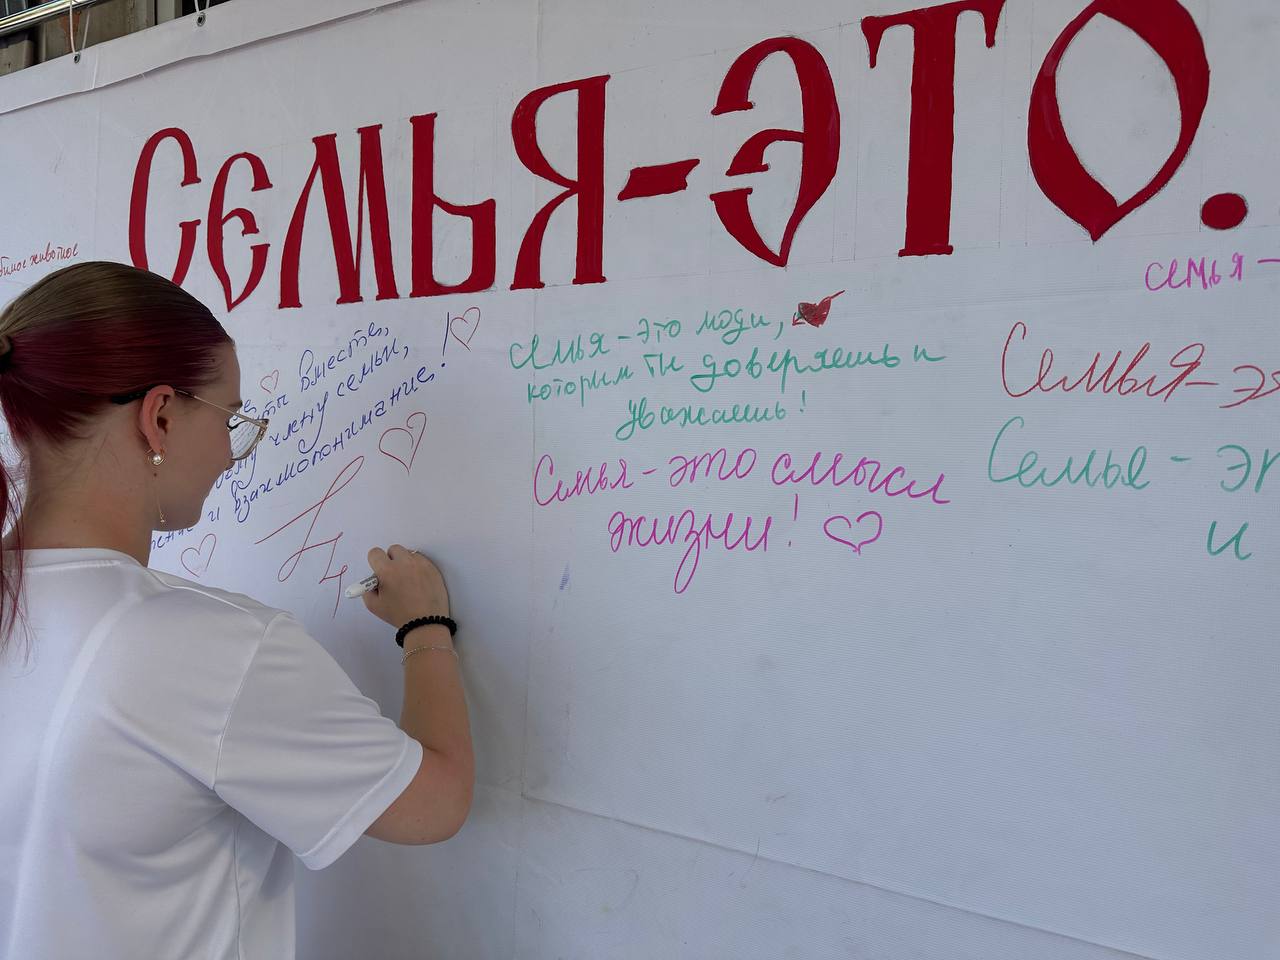 Семья-это.
животное
вместе,
члену семьи,
и взаимопонимание!
Семья-это люди,
которым ты доверяешь и
уважаешь!
Семья-это смысл
жизни!
семья-
Семья-э
Семья-эт
и